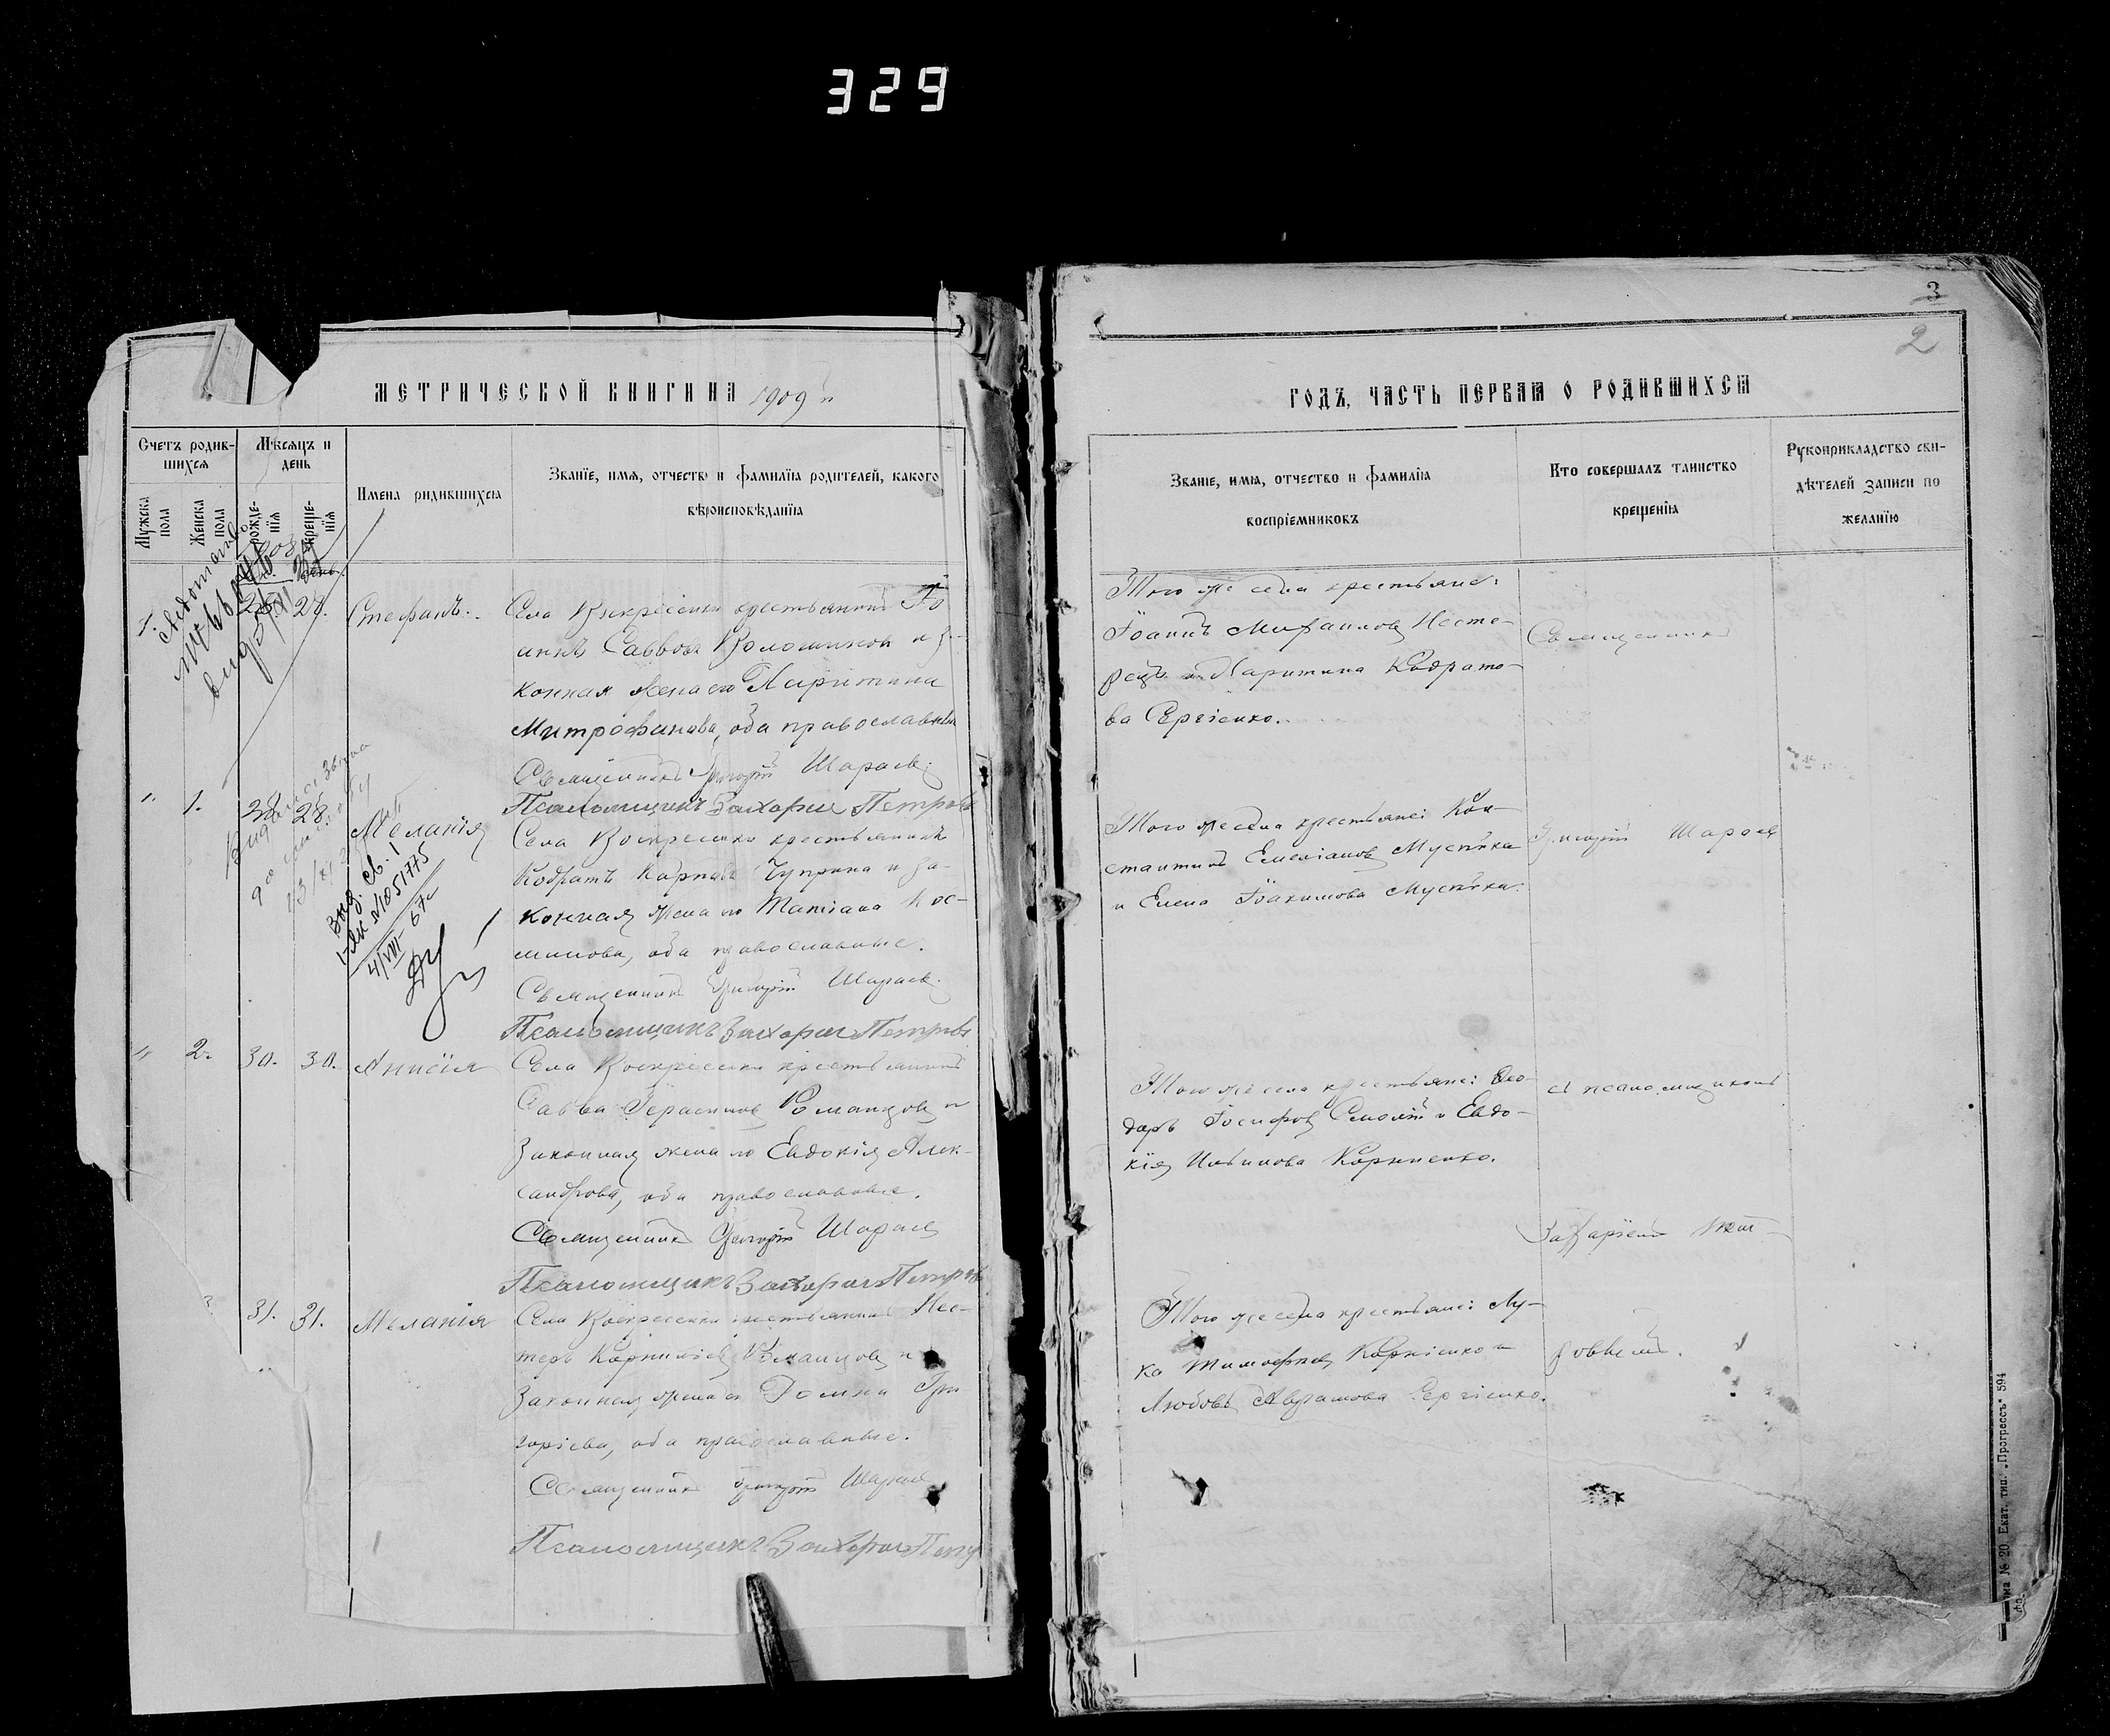 329
3
2
МЕТРИЧЕСКОЙ КНИГИ НА 1909 й
ГОДЪ, ЧАСТЬ ПЕРВАЯ О РОДИВШИХСЯ
Счетъ родив-
шихся
Мѣсяцъ и
день
Мужска
пола
Женска
пола
рожде-
нія
креще-
нія
Имена родившихся
Званіе, имя, отчество и фамилія родителей, какого
вѣроисповѣданія
Званіе, имя, отчество и фамилія
воспріемниковъ
Кто совершалъ таинство
крещенія
Рукоприкладство сви-
дѣтелей записи по
желанію
1. 28. Стефанъ.
Села Воскресенки крестьянинъ
Савво Волошинов и за-
конная жена его Харитина
Митрофанова, оба православные
Священникъ Григорій Шараев.
Псаломщикъ Захарій Петров
Того же села крестьяне:
Іоаннъ Митрофанов Несте-
ренко и Харитина Кодрато-
ва Сергіенко.
Священникъ
" 1. 28. 28. Меланія
Села Воскресенки крестьянинъ
Кодратъ Карпов Чуприна и за-
конная жена его Татіана Кос-
минова, оба православные.
Священникъ Григорій Шараев.
Псаломщикъ Захарій Петров
Того же села крестьяне: Кон-
стантинъ Емеліанов Мусѣйко
и Елена Іоакимова Мусѣйко.
Григорій Шараев
Выд. св. I
№ 1051775
4/VIII-67г
" 2. 30. 30. Анисія
Села Воскресенки крестьянинъ
Савва Герасимов Романцов и
Законная жена его Евдокія Алек-
сандрова, оба православные.
Священникъ Григорій Шараев
Псаломщикъ Захарій Петров
Того же села крестьяне: Фео-
доръ Іосифов Смолій и Евдо-
кія Ильинова Корніенко.
съ псаломщикомъ
Захаріемъ Пет-
ровымъ.
3 31. 31. Меланія
Села Воскресенки крестьянинъ Нес-
теръ Корниліев Романцов и
Законная жена его Домна Гри-
горіева, оба православные.
Священникъ Григорій Шараев
Псаломщикъ Захарій Петр
Того же села крестьяне: Лу-
ка Тимофеев Корніенко и
Любовь Аврамова Сергіенко.
№ 20. Екат. тип. „Прогрессъ" 594